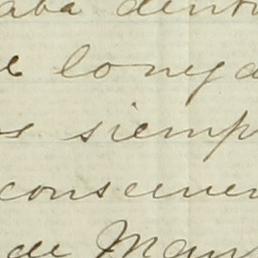 aba dentr
e longa
s siemp
conserver
de Man